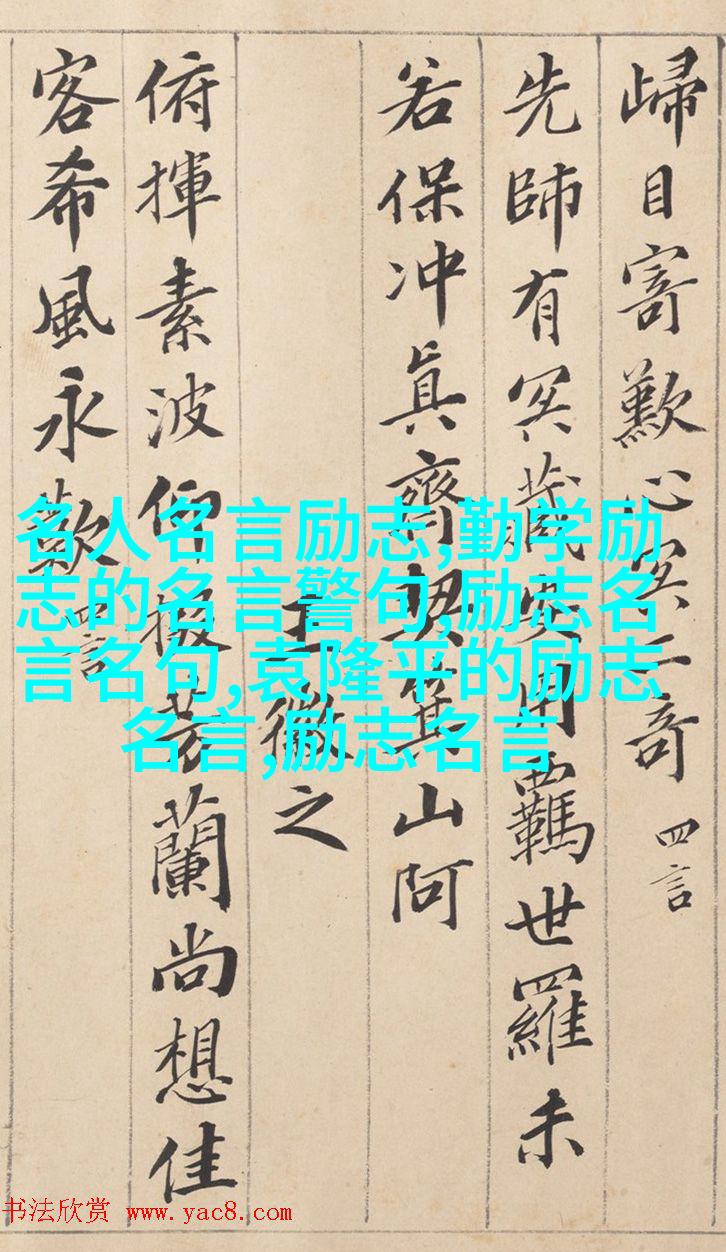 歸目寄歎心冥二奇 四言
先師有冥藏安用羈世羅未
若保冲眞齊契箕山阿
王徽之
俯揮素波仰掇芳蘭尚想佳
客希風永歎 四言
名人名言励志,勤学励
志的名言警句,励志名
言名句,袁隆平的励志
名言,励志名言
书法欣赏 www.yac8.com